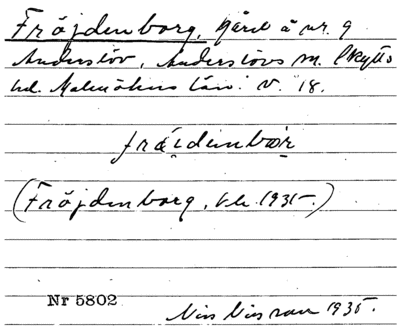 Fröjdenborg, gård å nr. 9
Anderslöv, Anderslövs sn. Skytts
hd. Malmöhus län. V. 18.
fräi̯denbɷr
(Fröjdenborg, tlr. 1935.)
Nr 5802
Nils Nilsson 1935.